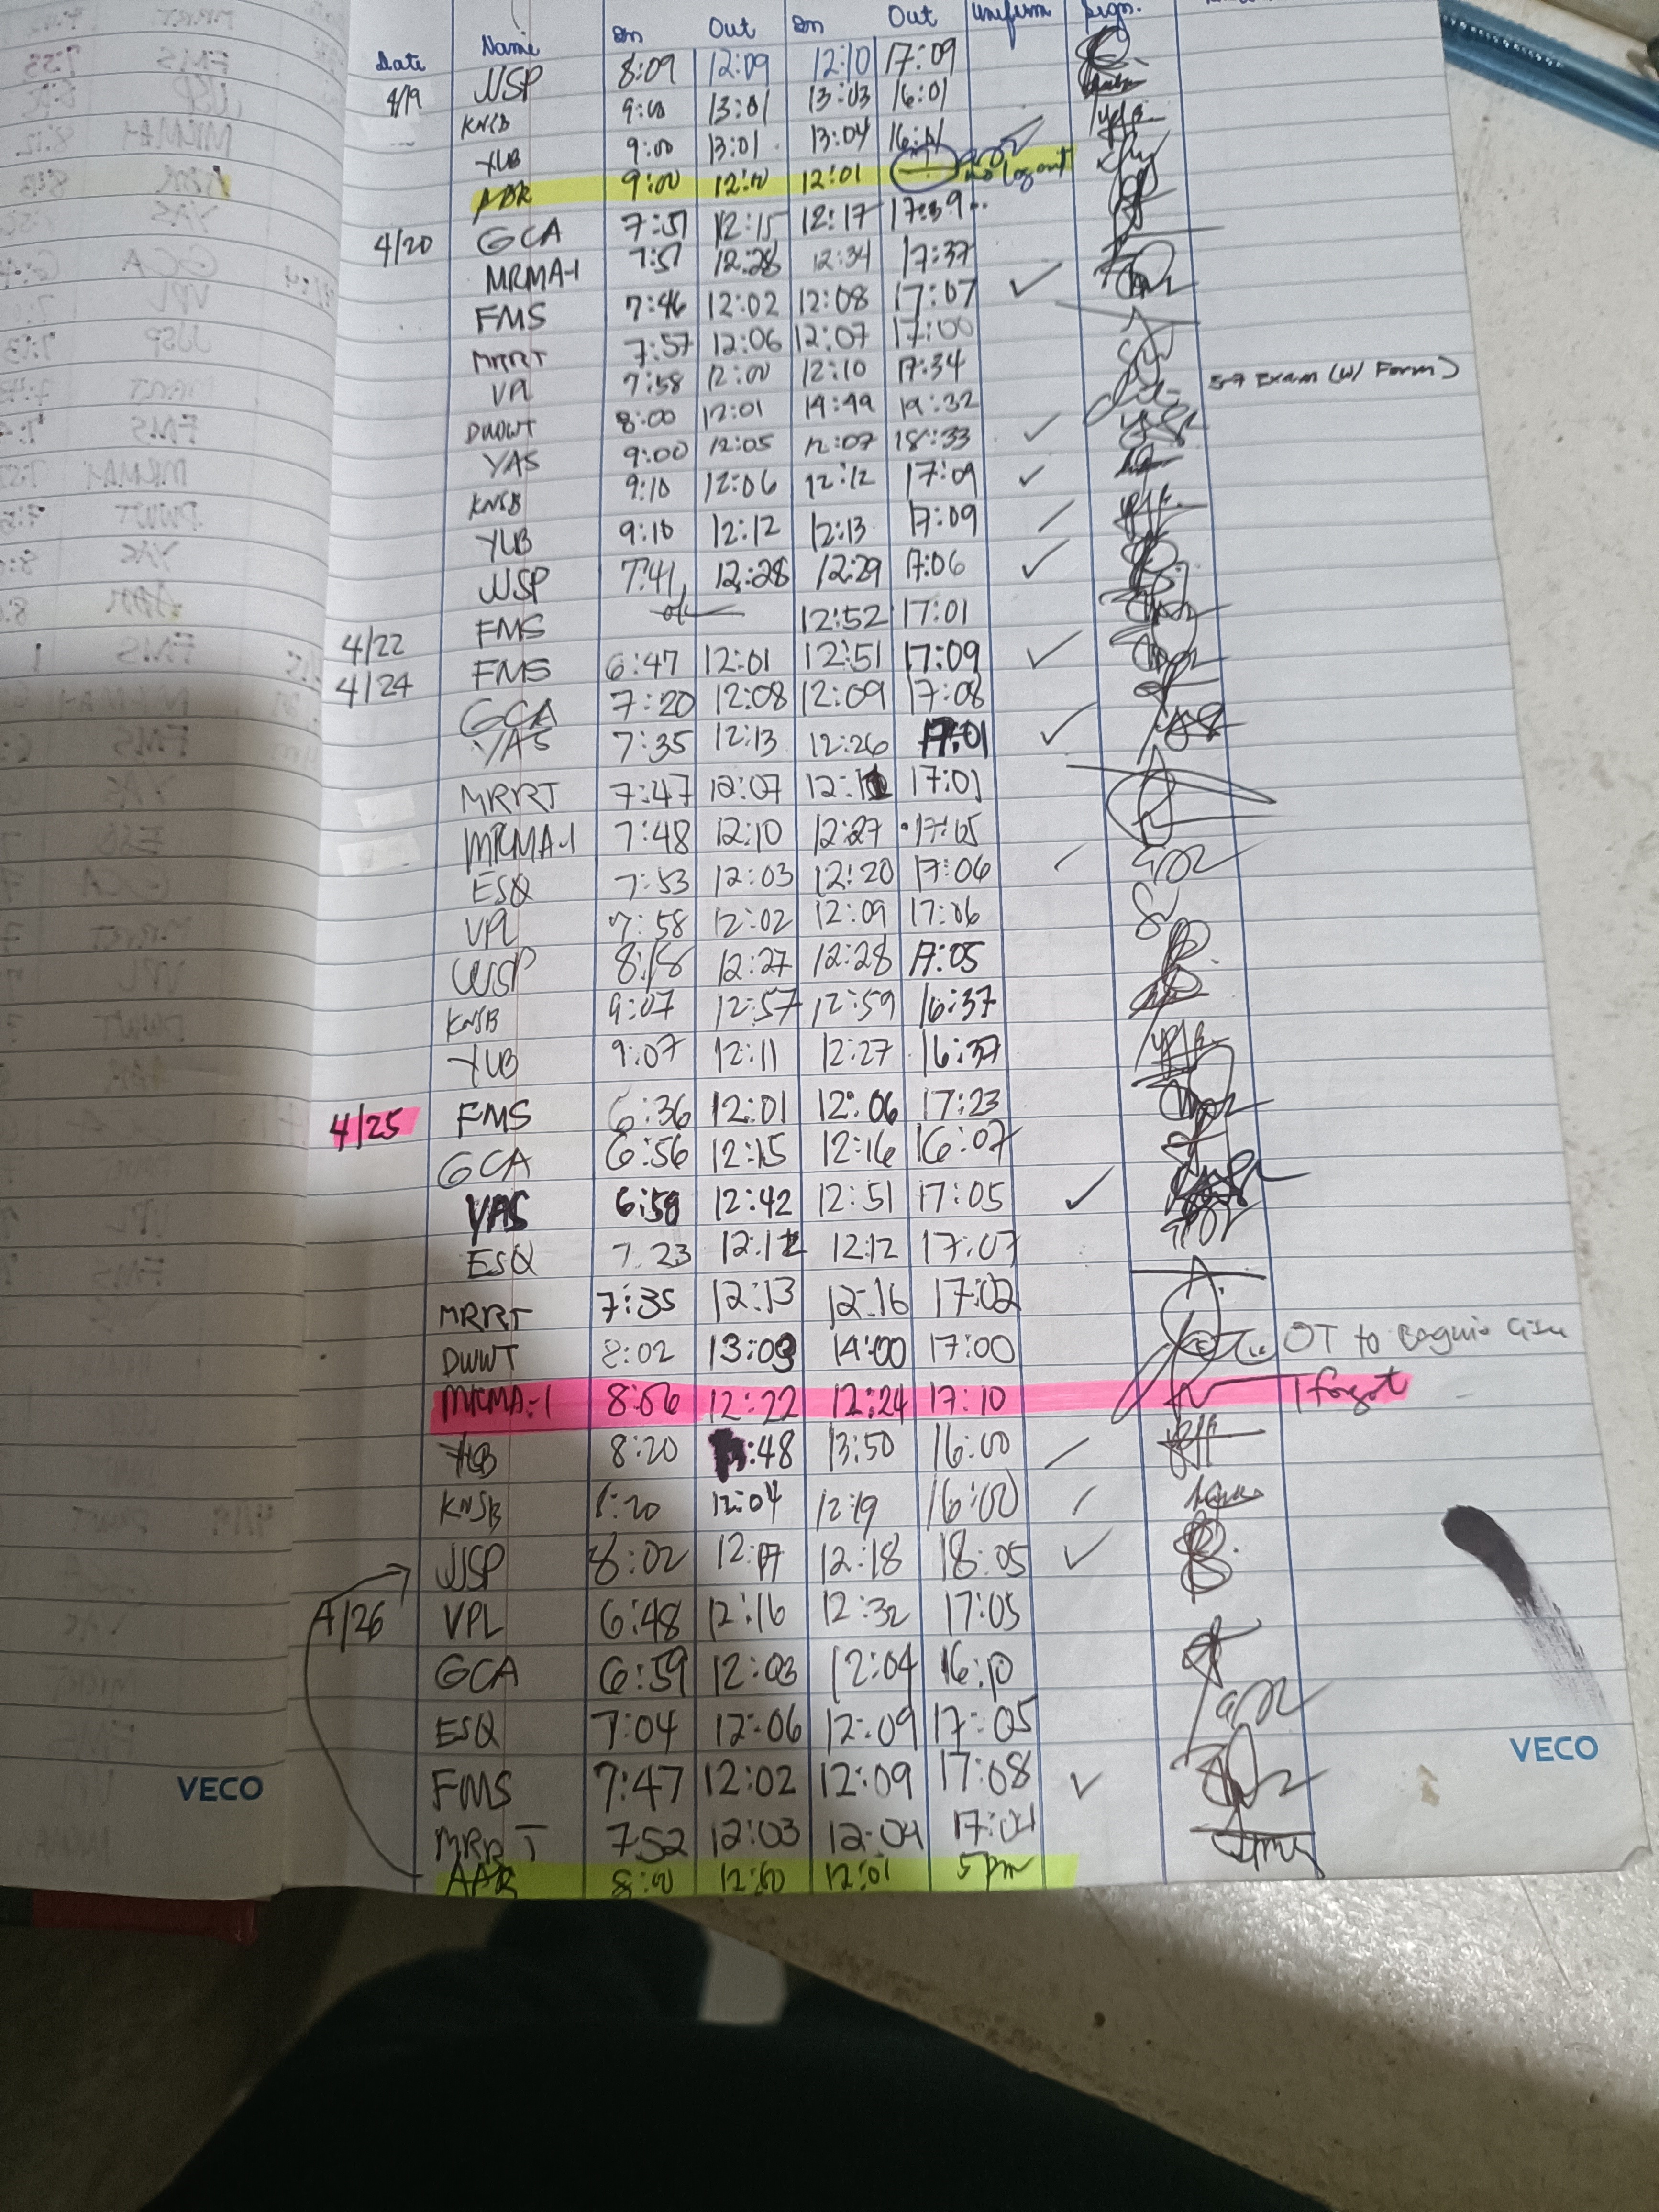 Date Name In Out In Out Uniform Sign.
4/19 JJSP 8:09 12:09 12:10 17:09
KNSB 9:00 13:01 13:03 16:01
YUB 9:00 13:01 13:04 16:01
ABR 9:00 12:00 12:01 no logout
4/20 GCA 7:51 12:15 12:17 17:39
MRMA-1 7:51 12:28 12:34 17:37
FMS 7:46 12:02 12:08 17:07
MRRT 7:57 12:06 12:07 17:00
VPL 7:58 12:00 12:10 17:34 5-7 Exam (w/ Form)
DWWT 8:00 12:01 14:49 19:32
YAS 9:00 12:05 12:07 18:33
KNSB 9:10 12:06 12:12 17:09
YUB 9:10 12:12 12:13 17:09
JJSP 7:41 12:28 12:29 17:06
4/22 FMS 12:52 17:01
4/24 FMS 6:47 12:01 12:51 17:09
GCA 7:20 12:08 12:09 17:08
YAS 7:35 12:13 12:26 17:01
MRRT 7:47 12:07 17:01
MRMA-1 7:48 12:10 12:27 17:05
ESQ 7:53 12:03 12:20 17:06
VPL 7:58 12:02 12:09 17:06
JJSP 8:18 12:27 12:28 17:05
KNSB 9:07 12:57 12:59 16:37
YUB 9:07 12:11 12:27 16:37
4/25 FMS 6:36 12:01 12:06 17:23
GCA 6:56 12:15 12:16 16:07
YAS 6:58 12:42 12:51 17:05
ESQ 7:23 12:12 12:12 17:07
MRRT 7:35 12:13 12:16 17:02
DWWT 8:02 13:09 14:00 17:00 OT to Baguio
MRMA-1 8:06 12:22 12:24 17:10 I forgot
YUB 8:20 :48 13:50 16:00
KNSB 8:20 12:04 12:19 16:00
JJSP 8:02 12:17 12:18 18:05
4/26 VPL 6:48 12:16 12:32 17:05
GCA 6:59 12:03 12:04 16:10
ESQ 7:04 12:06 12:09 17:05
FMS 7:47 12:02 12:09 17:08
MRRT 7:52 12:03 12:04 17:04
ABR 8:00 12:00 12:01 5 pm
VECO
VECO